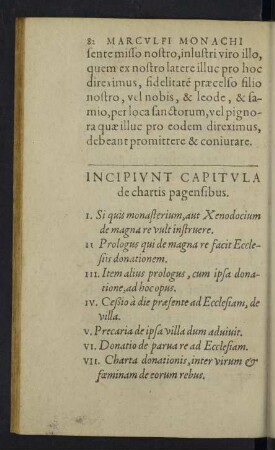 82 MARCVLFI MONACHI
ſente miſſo noſtro, inluſtri viro illo,
quem ex noſtro latere illuc pro hoc
direximus, fidelitatē præcelſo filio
noſtro, vel nobis, & leode, & ſa-
mio, per loca ſanctorum, vel pigno-
ra quæ illuc pro eodem direximus,
debeant promittere & coniurare.
INCIPIVNT CAPITVLA
de chartis pagenſibus.
I. Si quis monaſterium, aut Xenodocium
de magna re vult inſtruere.
II Prologus qui de magna re facit Eccle-
ſiis donationem.
III. Item alius prologus, cum ipſa dona-
tione, ad hoc opus.
IV. Ceſsio à die præſente ad Eccleſiam, de
villa.
V. Precaria de ipſa villa dum aduiuit.
VI. Donatio de parua re ad Eccleſiam.
VII. Charta donationis, inter virum &
fœminam de eorum rebus.